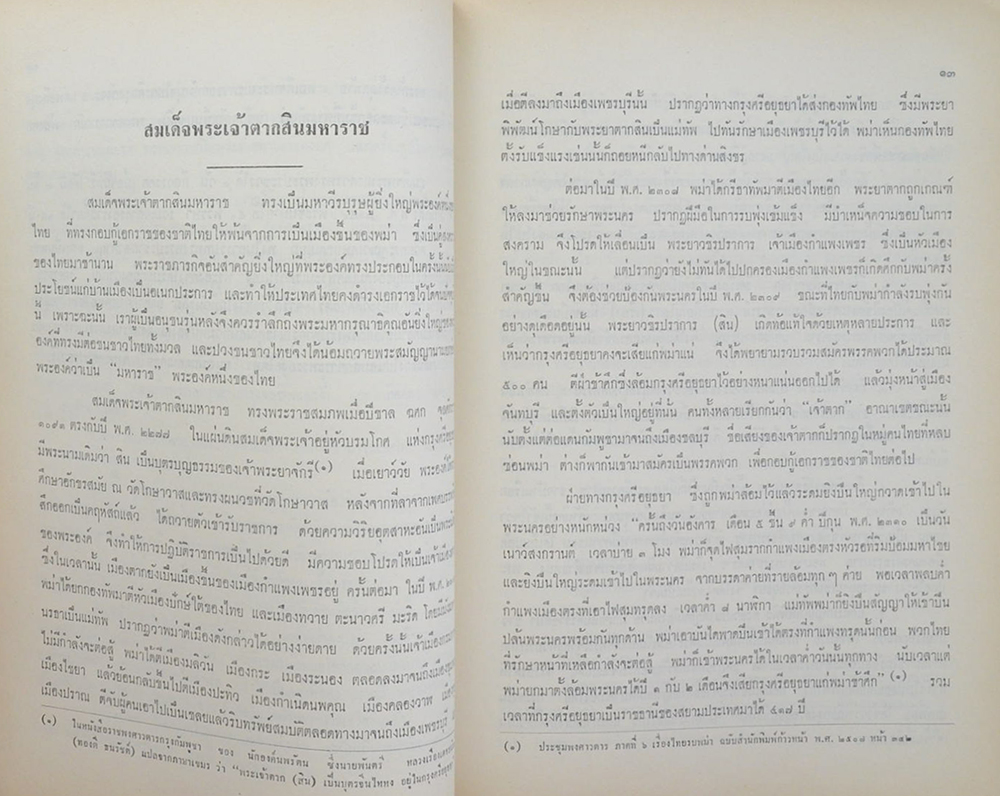 สมเด็จพระเจ้าตากสินมหาราช
สมเด็จพระเจ้าตากสินมหาราช ทรงเป็นมหาวีรบุรุษผู้ยิ่งใหญ่พระองค์หนึ่ง
ไทย ที่ทรงกอบกู้เอกราชของชาติไทยให้พ้นจากการเป็นเมืองขึ้นของพม่า ซึ่งเป็น
ของไทยมาช้านาน พระราชภารกิจอันสำคัญยิ่งใหญ่ที่พระองค์ทรงประกอบในครั้งนั้น
ประโยชน์แก่บ้านเมืองเป็นอเนกประการ และทำให้ประเทศไทยคงดำรงเอกราชไว้ได้
นี้ เพราะฉะนั้น เราผู้เป็นอนุชนรุ่นหลังจึงควรรำลึกถึงพระมหากรุณาธิคุณอันยิ่งใหญ่
องค์ที่ทรงมีต่อชนชาวไทยทั้งมวล และปวงชนชาวไทยจึงได้น้อมถวายพระสมัญญานาม
พระองค์ว่าเป็น "มหาราช" พระองค์หนึ่งของไทย
สมเด็จพระเจ้าตากสินมหาราช ทรงพระราชสมภพเมื่อปีขาล ฉศก
๑๐๙๖ ตรงกับปี พ.ศ. ๒๒๗๗ ในแผ่นดินสมเด็จพระเจ้าอยู่หัวบรมโกศ แห่งกรุงศรีอยุธยา
มีพระนามเดิมว่า สิน เป็นบุตรบุญธรรมของเจ้าพระยาจักรี(๑) เมื่อเยาว์วัย พระองค์ได้
ศึกษาอักขรสมัย ณ วัดโกษาวาสและทรงผนวชที่วัดโกษาวาส หลังจากที่ลาจากเพศ
สึกออกเป็นคฤหัสถ์แล้ว ได้ถวายตัวเข้ารับราชการ ด้วยความวิริยอุตสาหะอันเป็น
ของพระองค์ จึงทำให้การปฏิบัติราชการเป็นไปด้วยดี มีความชอบโปรดให้เป็นเจ้าเมือง
ซึ่งในเวลานั้น เมืองตากยังเป็นเมืองขึ้นของเมืองกำแพงเพชรอยู่ ครั้นต่อมา ในปี พ.ศ.
พม่าได้ยกกองทัพมาตีหัวเมืองปักษ์ใต้ของไทย และเมืองทวาย ตะนาวศรี มะริด โดยมี
นรธาเป็นแม่ทัพ ปรากฏว่าพม่าตีเมืองดังกล่าวได้อย่างง่ายดาย ด้วยครั้งนั้นเจ้าเมือง
ไม่มีกำลังจะต่อสู้ พม่าได้ตีเมืองมลิวัน เมืองกระ เมืองระนอง ตลอดลงมาจนถึงเมือง
เมืองไชยา แล้วย้อนกลับขึ้นไปตีเมืองปะทิว เมืองกำเนิดนพคุณ เมืองคลองวาฬ
เมืองปราณ ตีจับผู้คนเอาไปเป็นเชลยแล้วริบทรัพย์สมบัติตลอดทางมาจนถึงเมืองเพชรบุรี
(๑) ในหนังสือราชพงศาวดารกรุงกัมพูชา ของ นักองค์นพรัตน ซึ่งนายพันตรี หลวงเรือง
(ทองดี ธนรัชต์) แปลจากภาษาเขมร ว่า "พระเจ้าตาก (สิน) เป็นบุตรจีนไหฮอง อยู่ในกรุงศรี
๑๓
เมื่อตีลงมาถึงเมืองเพชรบุรีนั้น ปรากฏว่าทางกรุงศรีอยุธยาได้ส่งกองทัพไทย ซึ่งมีพระยา
พิพัฒน์โกษากับพระยาตากสินเป็นแม่ทัพ ไปทันรักษาเมืองเพชรบุรีไว้ได้ พม่าเห็นกองทัพไทย
ตั้งรับแข็งแรงเช่นนั้นก็ถอยหนีกลับไปทางด่านสิงขร
ต่อมาในปี พ.ศ. ๒๓๐๘ พม่าได้กรีธาทัพมาตีเมืองไทยอีก พระยาตากถูกเกณฑ์
ให้ลงมาช่วยรักษาพระนคร ปรากฏฝีมือในการรบพุ่งเข้มแข็ง มีบำเหน็จความชอบในการ
สงคราม จึงโปรดให้เลื่อนเป็น พระยาวชิรปราการ เจ้าเมืองกำแพงเพชร ซึ่งเป็นหัวเมือง
ใหญ่ในขณะนั้น แต่ปรากฏว่ายังไม่ทันได้ไปปกครองเมืองกำแพงเพชรก็เกิดศึกกับพม่าครั้ง
สำคัญขึ้น จึงต้องช่วยป้องกันพระนครในปี พ.ศ. ๒๓๐๙ ขณะที่ไทยกับพม่ากำลังรบพุ่งกัน
อย่างดุเดือดอยู่นั้น พระยาวชิรปราการ (สิน) เกิดท้อแท้ใจด้วยเหตุหลายประการ และ
เห็นว่ากรุงศรีอยุธยาคงจะเสียแก่พม่าแน่ จึงได้พยายามรวบรวมสมัครพรรคพวกได้ประมาณ
๕๐๐ คน ตีฝ่าข้าศึกซึ่งล้อมกรุงศรีอยุธยาไว้อย่างหนาแน่นออกไปได้ แล้วมุ่งหน้าสู่เมือง
จันทบุรี และตั้งตัวเป็นใหญ่อยู่ที่นั้น คนทั้งหลายเรียกกันว่า "เจ้าตาก" อาณาเขตขณะนั้น
นับตั้งแต่ต่อแดนกัมพูชามาจนถึงเมืองชลบุรี ชื่อเสียงของเจ้าตากก็ปรากฏในหมู่คนไทยที่หลบ
ซ่อนพม่า ต่างก็พากันเข้ามาสมัครเป็นพรรคพวก เพื่อกอบกู้เอกราชของชาติไทยต่อไป
ฝ่ายทางกรุงศรีอยุธยา ซึ่งถูกพม่าล้อมไว้แล้วระดมยิงปืนใหญ่กวาดเข้าไปใน
พระนครอย่างหนักหน่วง "ครั้นถึงวันอังคาร เดือน ๕ ขึ้น ๙ ค่ำ ปีกุน พ.ศ. ๒๓๑๐ เป็นวัน
เนาว์สงกรานต์ เวลาบ่าย ๓ โมง พม่าก็จุดไฟสุมรากกำแพงเมืองตรงหัวรอที่ริมป้อมมหาไชย
และยิงปืนใหญ่ระดมเข้าไปในพระนคร จากบรรดาค่ายที่รายล้อมทุก ๆ ค่าย พอเวลาพลบค่ำ
กำแพงเมืองตรงที่เอาไฟสุมทรุดลง เวลาค่ำ ๘ นาฬิกา แม่ทัพพม่าก็ยิงปืนสัญญาให้เข้าปีน
ปล้นพระนครพร้อมกันทุกด้าน พม่าเอาบันไดพาดปีนเข้าได้ตรงที่กำแพงทรุดนั้นก่อน พวกไทย
ที่รักษาหน้าที่เหลือกำลังจะต่อสู้ พม่าก็เข้าพระนครได้ในเวลาค่ำวันนั้นทุกทาง นับเวลาแต่
พม่ายกมาตั้งล้อมพระนครได้ปี ๑ กับ ๒ เดือนจึงเสียกรุงศรีอยุธยาแก่พม่าข้าศึก" (๑) รวม
เวลาที่กรุงศรีอยุธยาเป็นราชธานีของสยามประเทศมาได้ ๔๑๗ ปี
(๑) ประชุมพงศาวดาร ภาคที่ ๖ เรื่องไทยรบพม่า ฉบับสำนักพิมพ์ก้าวหน้า พ.ศ. ๒๕๐๘ หน้า ๓๕๒